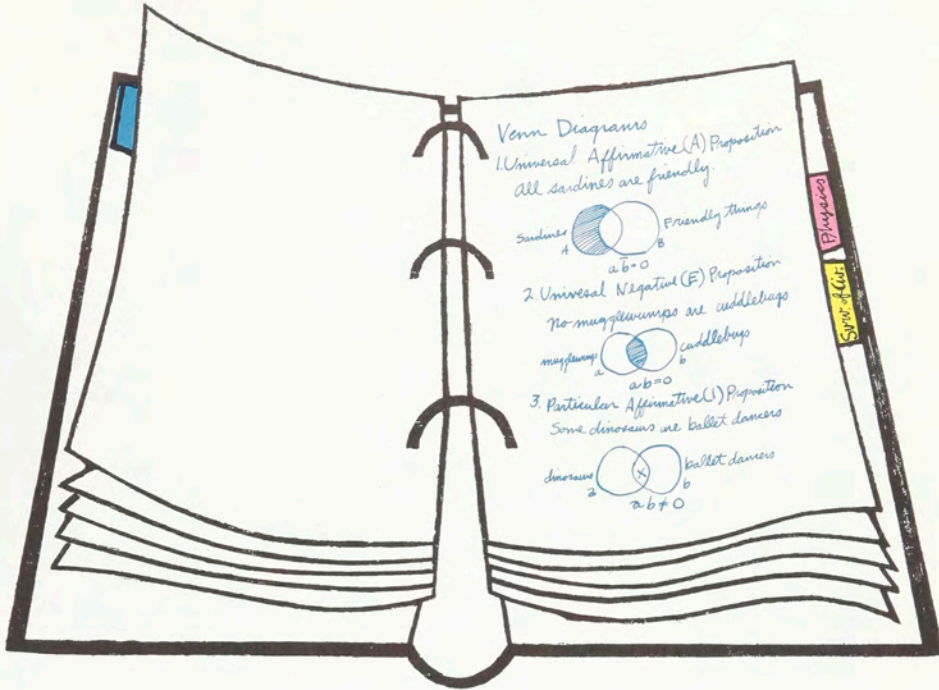 Venn Diagrams
1. Universal Affirmative (A) Proposition
All sardines are friendly.
Sardines
A
Friendly things
B
a b̄ = 0
2. Univesal Negative (E) Proposition
No mugglewumps are cuddlebugs
mugglewumps
a
cuddlebugs
b
ab = 0
3. Particular Affirmative (I) Proposition
Some dinosaurs are ballet dancers
dinosaurs
a
ballet dancers
b
X
ab ≠ 0
Physics
Surv. of Civ.